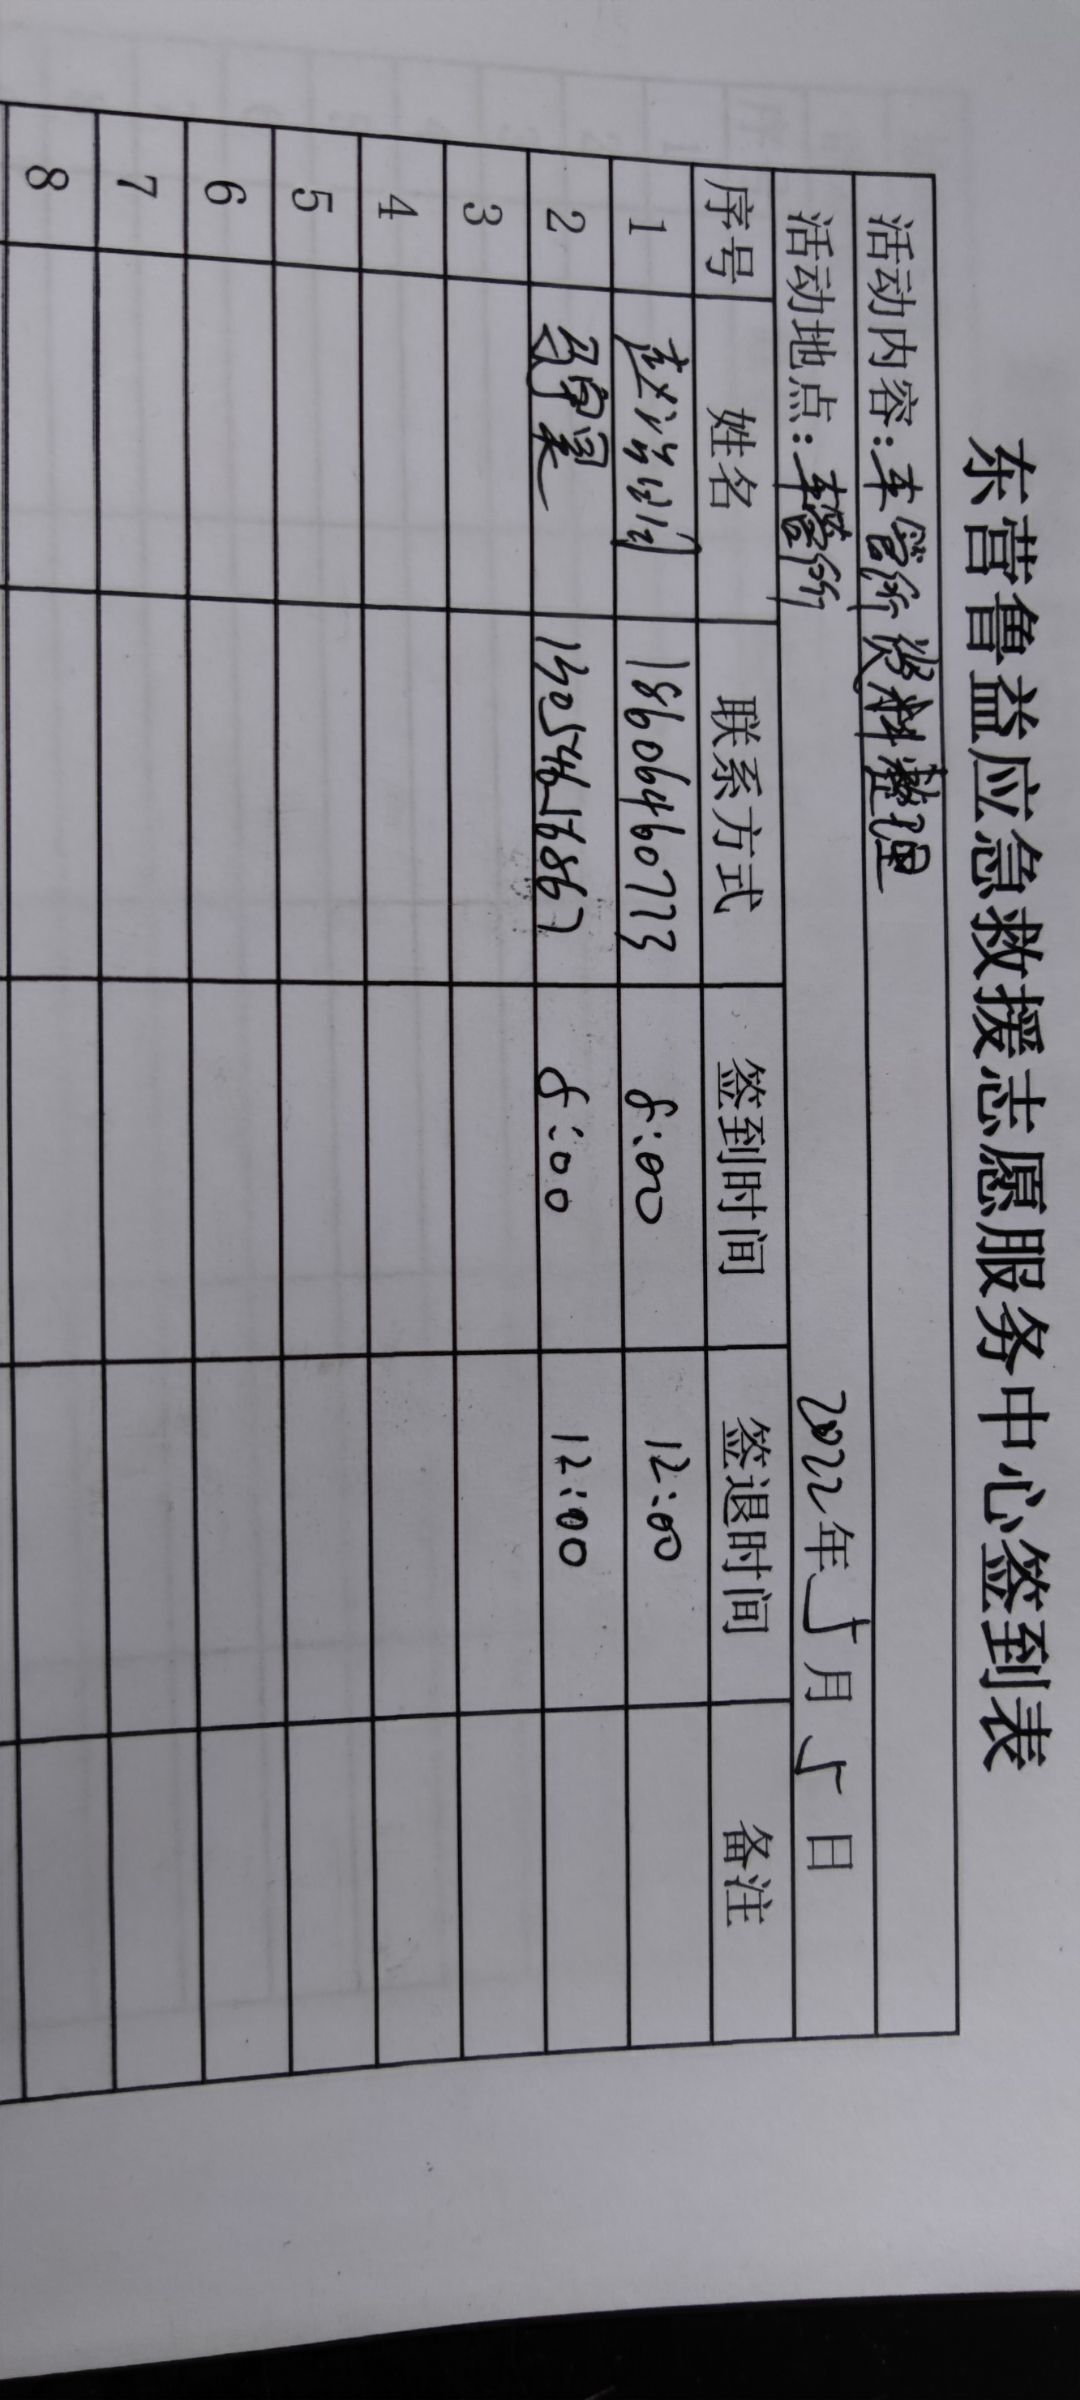 东营鲁益应急救援志愿服务中心签到表
活动内容:车管所资料整理
活动地点:车管所 2022年5月5日
序号 姓名 联系方式 签到时间 签退时间 备注
1 赵 18606460773 8:00 12:00
2 8:00 12:00
3
4
5
6
7
8